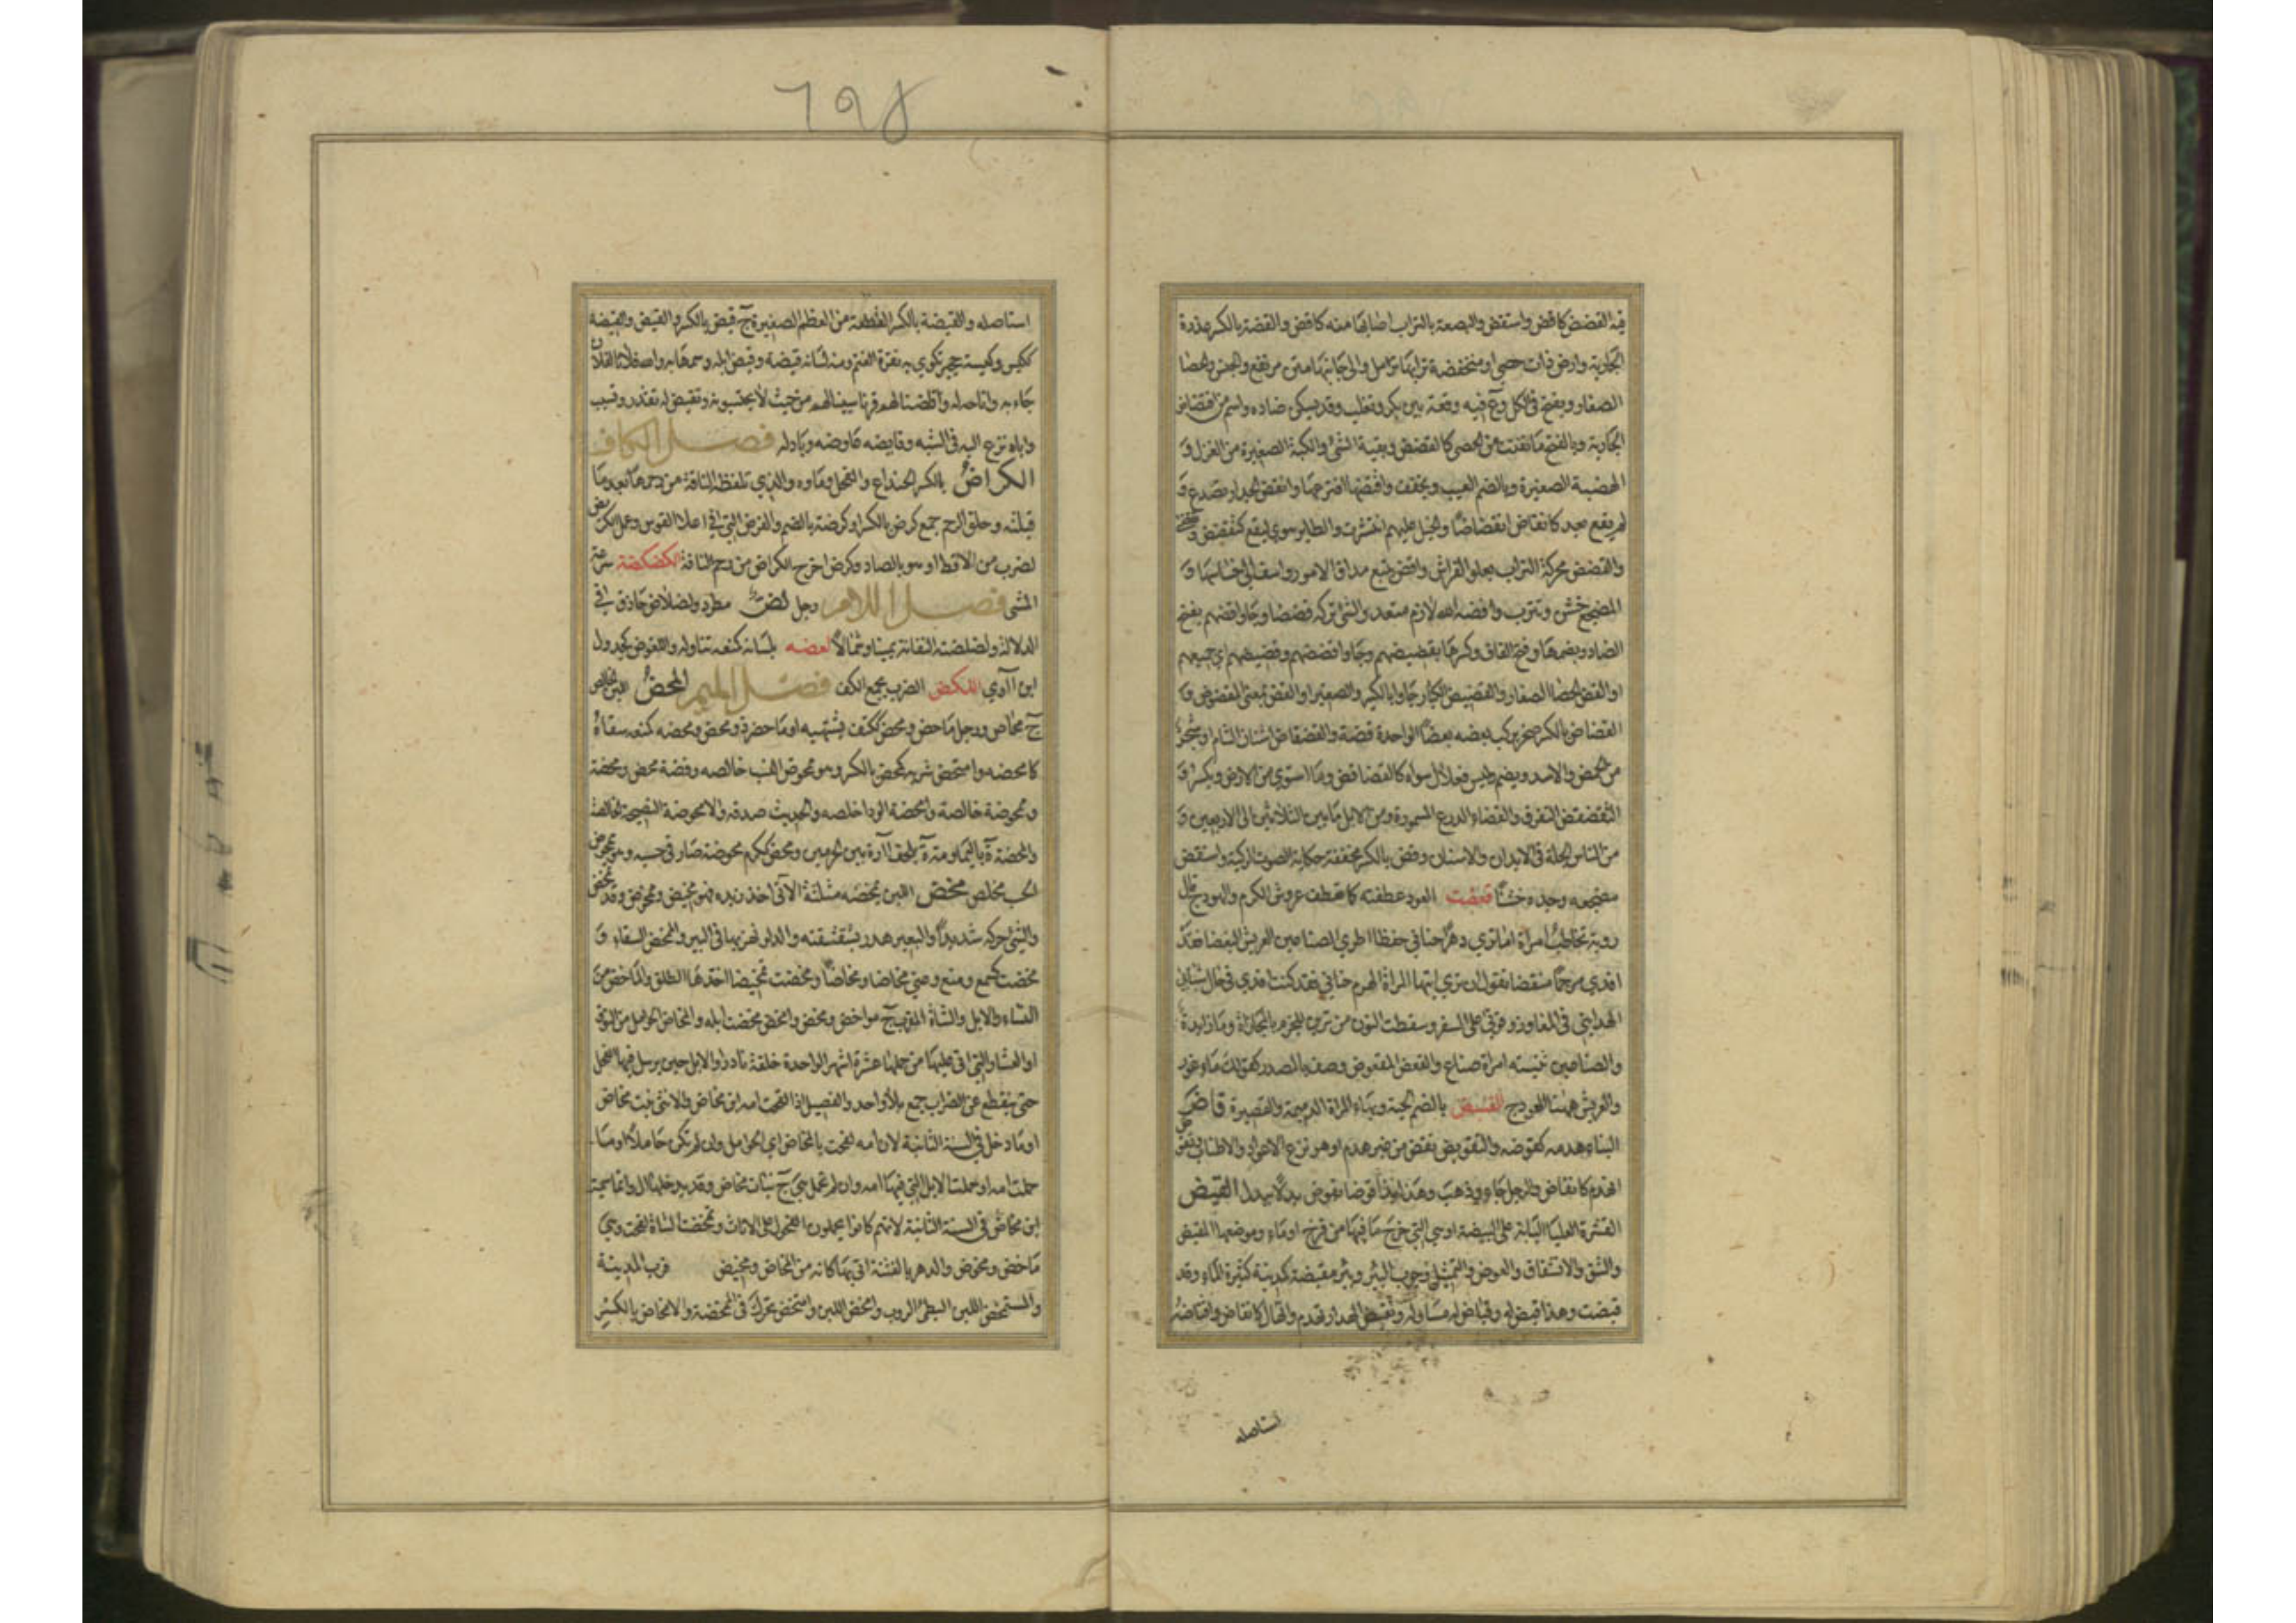 فيه القضض كاقض واستقض والبضعة بالتراب اصابها منه كاقض والقضة بالكسر عذرة
الجارية وارض ذات حصى او منخفضة ترابها رمل والى جانبها متن مرتفع والجنس والحصا
الصغار ويفتح في الكل وع فيه وقعة بين بكر وتغلب وقد يسكن ضاده واسم من اقتضاض
الجارية وبالفتح ما تفتت من الحصى كالقضض وبقية الشئ والكبة الصغيرة من الغزل و
الهضبة الصغيرة وبالضم العيب ويخفف واقتضها افترعها وانقض الجدار تصدع و
لم يقع بعد كانقاض انقضاضا والخيل عليهم انتشرت والطاير هوى ليقع كتقضض
والقضض محركة التراب يعلو الفراش واقض تتبع مداق الامور واسف الى خساسها و
المضجع خشن وتترب واقضه الله لازم متعد والشئ تركه قضضا وجاوا قضهم بفتح
الضاد وبضمها وفتح القاف وكسرها بقضيضهم وجاوا قضضهم وقضيضهم اى جميعهم
او القض الحصا الصغار والقضيض الكبار اى جاوا بالكبير والصغير او القض بمعنى المقضوض و
القضاض بالكسر صخر يركب بعضه بعضا الواحدة قضة والقضقاض اشنان الشام او شجر
من الحمض والاسد ويضم وليس فعلال سواه كالقضاقض وما استوى من الارض ويكسر و
التقضقض التفرق والقضاء الدرع المسمورة ومن الابل ما بين الثلاثين الى الاربعين و
من الناس الجلة في الابدان والاسنان وقض بالكسر مخففة حكاية صوت الركبة واستقض
مضجعه وجده خشنا قعضت العود عطفته كما تعطف عروش الكرم والهودج قال
روبة تخاطب امراة اما ترى دهرا حنانى حفظا اطر الصناعين العريش القعضا فقد
افدى مرجما منقضا تقول ان ترى ايتها المراة الهرم حنانى فقد كنت افدى في حال شبابى
الهدايتى في المفاوز وقوتى على السفر وسقطت النون من ترين للجزم بالمجازاة وما زايدة
والصناعين تثنية امراة صناع والقعض المقعوض وصف بالمصدر كقولك ماء غور
والعريش ههنا الهودج القنبض بالضم الحية وبهاء المراة الدميمة والقصيرة قاض
البناء هدمه كقوضه والتقويض نقض من غير هدم او هو نزع الاعواد والاطناب وتقوض
انهدم كانقاض والرجل جاء وذهب وهذا بذا قوضا بقوض بدلا ببدل القيض
القشرة العليا اليابسة على البيضة او هي التي خرج ما فيها من فرخ او ماء وموضعها المقيض
والشق والانشقاق والعوض والتمثيل وجوب البئر وبئر مقيضة كمدينة كثيرة الماء وقد
قيضت وهذا قيض له وقياض له مساو له وتقيض الجدار تهدم وانهال كانقاض واقتاضه
استاصله
٦٩٤
استاصله والقيضة بالكسر القطعة من العظم الصغيرة ج قيض بالكسر والقيض والقيضة
ككيس وكيسة حجر تكوى به نقرة الغنم ومنه لسانه قيضة وقيض ابله وسمها به والله فلانا لفلان
جاءه به واتاحه له وقيضنا لهم قرناء سببنا لهم من حيث لا يحتسبونه وتقيض له تقدر وتسبب
واباه نزع اليه في الشبه وقايضه عاوضه وبادله فصل الكاف
الكراض بالكسر الخداج والفحل وماوه والذى تلفظه الناقة من رحمها بعد ما
قبلته وحلق الرحم جمع كرض بالكسر او كرضة بالضم والفرض التي في اعلا القوس وعمل الكريض
لضرب من الاقط او هو بالصاد وكرض اخرج الكراض من رحم الناقة الكضكضة سرعة
المشى فصل اللام رجل لض مطرد ولضلاض حاذق في
الدلالة ولضلضته التفاته يمينا وشمالا لعضه بلسانه كمنعه تناوله واللعوض كجدول
ابن آوى اللكض الضرب بجمع الكف فصل الميم المحض اللبن الخالص
ج محاض ورجل ماحض ومحض ككتف يشتهيه او ماحض ذو محض ومحضه كمنعه سقاه
كامحضه وامتحض شربه كمحض بالكسر وهو ممحوض النسب خالصه وفضة محض ومحضة
وممحوضة خالصة وامحضه الود اخلصه والحديث صدقه والامحوضة النصيحة الخالصة
والمحضة ة باليمامة وة بلحف آرة بين الحرمين ومحض ككرم محوضة صار في حسبه وهو ممحوض
الحسب مخلص مخض اللبن يمخضه مثلثة الآتى اخذ زبده فهو مخيض وممخوض وقد تمخض
والشئ حركه شديدا والبعير هدر بشقشقته والدلو نهز بها في البير والممخض السقاء و
مخضت كسمع ومنع وعنى مخاضا ومخاضا ومخضت تمخيضا اخذها الطلق والماخض من
النساء والابل والشاة المقرب ج مواخض ومخض وامخض مخضت ابله والمخاض الحوامل من النوق
او العشار التي اتى عليها من حملها عشرة اشهر الواحدة خلفة نادرا والابل حين يرسل فيها الفحل
حتى ينقطع عن الضراب جمع بلا واحد والفصيل اذا لقحت امه ابن مخاض والانثى بنت مخاض
او ما دخل في السنة الثانية لان امه لحقت بالمخاض اى الحوامل وان لم تكن حاملا او ما
حملت امه او حملت الابل التي فيها امه وان لم تحمل هى ج بنات مخاض وقد يدخلهما ال وانما سميت
ابن مخاض في السنة الثانية لانهم كانوا يحملون الفحول على الاناث وتمخضت الشاة لقحت وهى
ماخض ومخوض والدهر بالفتنة اتى بها كانه من المخاض ومخيض قرب المدينة
والمستمخض اللبن البطئ الروب وامخض اللبن وامتخض تحرك في الممخضة والامخاض بالكسر